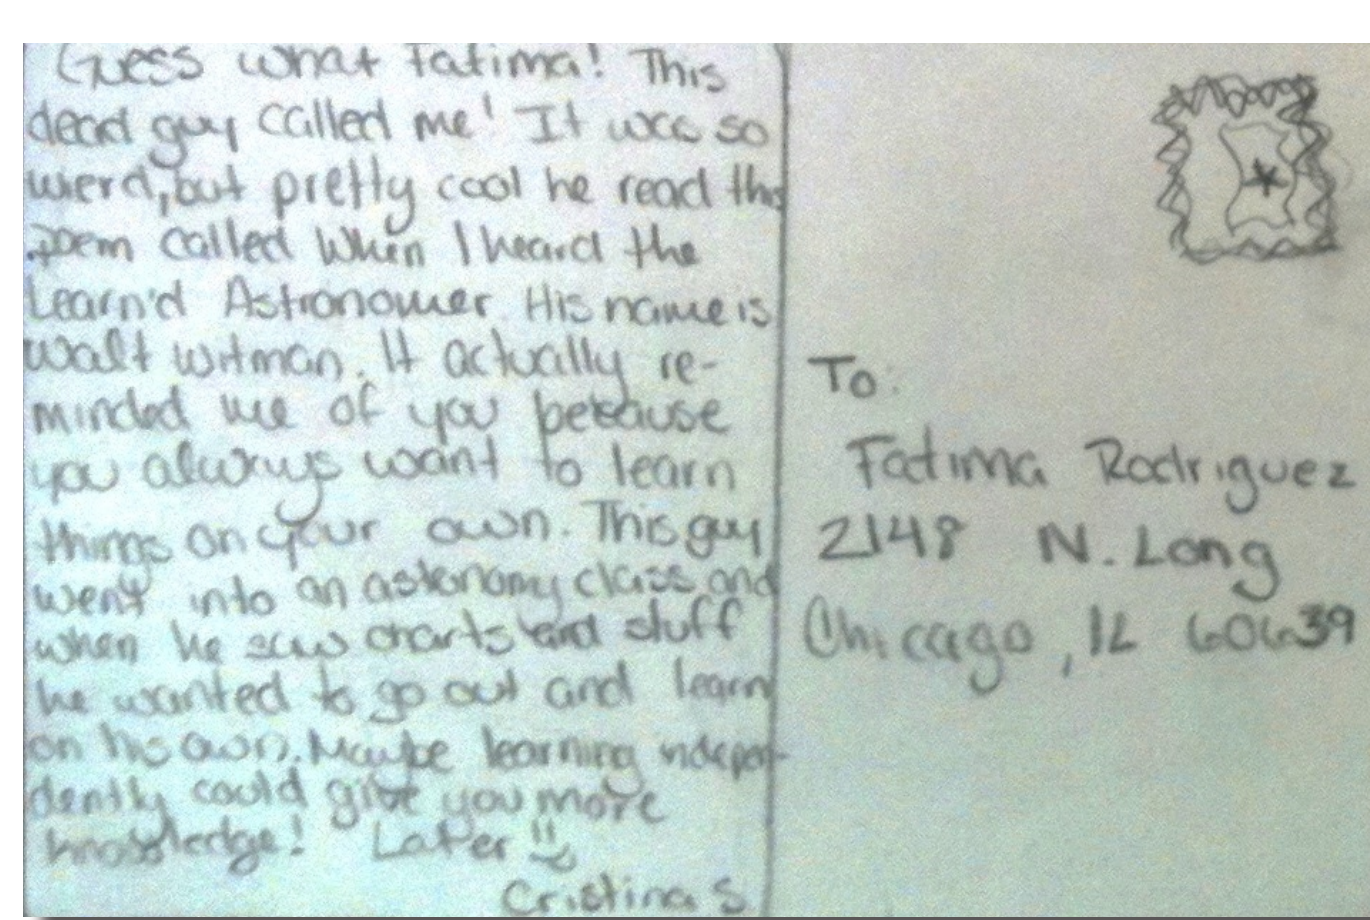 Guess what Fatima! This
dead guy called me! It was so
wierd, but pretty cool he read this
poem called When I heard the
Learn'd Astronomer. His name is
walt witman. It actually re-
minded me of you because
you always want to learn
things on your own. This guy
went into an astonomy class and
when he saw charts and stuff
he wanted to go out and learn
on his own. Maybe learning indepen-
dently could give you more
knowledge! Later
Cristina S.
To:
Fatima Rodriguez
2148 N. Long
Chicago, IL 60639